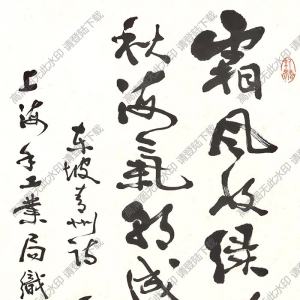 霜风收绿
秋海氣成
东坡青州诗
上海手工業局織
高清无此水印 请登陆下载